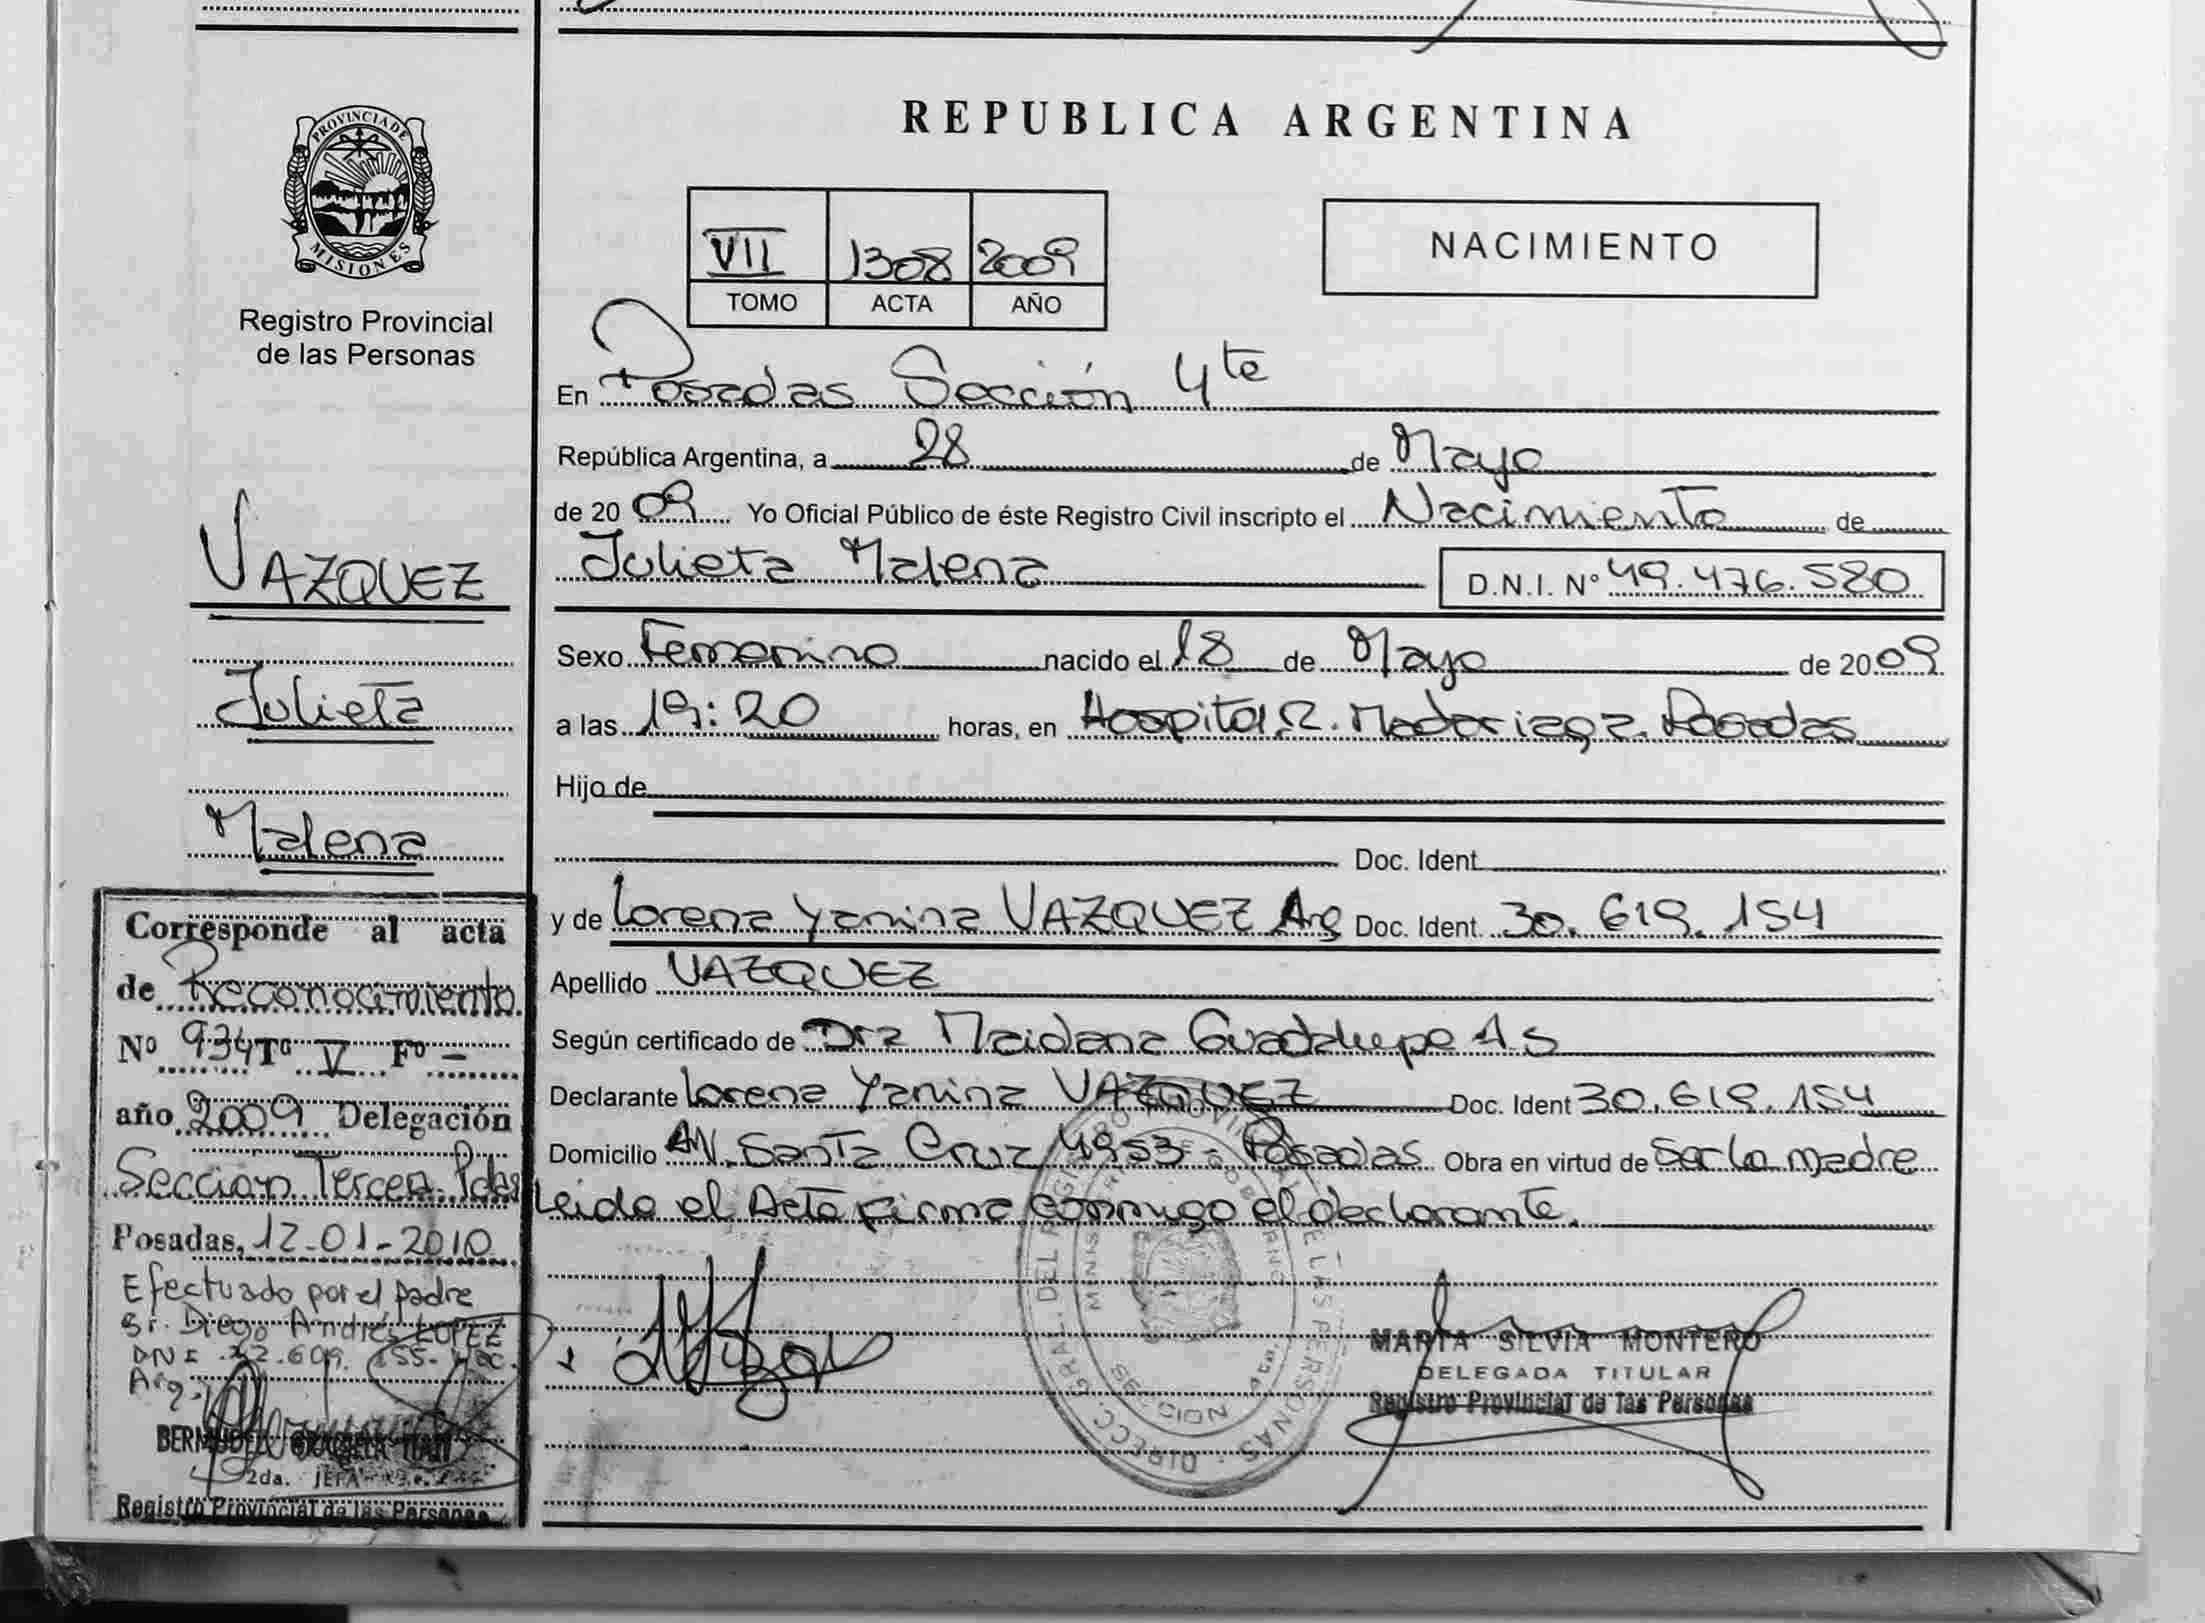 PROVINCIA DE
MISIONES
Registro Provincial
de las Personas
VAZQUEZ
Julieta
Malena
Corresponde al acta
de Reconocimiento
Nº 934 Tº V Fº -
año 2009 Delegación
Sección Tercera Pdas
Posadas, 12-01-2010
Efectuado por el padre
Sr. Diego Andrés LOPEZ
DNI
Arg.
2da. JEFA
Registro Provincial de las Personas
REPUBLICA ARGENTINA
VII 1308 2009
TOMO ACTA AÑO
NACIMIENTO
En Posadas Sección 4ta
República Argentina, a 28 de Mayo
de 2009 Yo Oficial Público de éste Registro Civil inscripto el Nacimiento de
Julieta Malena D.N.I. Nº 49.476.580
Sexo Femenino nacido el 18 de Mayo de 2009
a las 19:20 horas, en Hospital R. Madariaga. Posadas
Hijo de
Doc. Ident.
y de Lorena Yanina VAZQUEZ Arg Doc. Ident. 30.619.154
Apellido VAZQUEZ
Según certificado de Dra Maidana Guadalupe A S
Declarante Lorena Yanina VAZQUEZ Doc. Ident 30.619.154
Domicilio AV. Santa Cruz 4953 - Posadas Obra en virtud de ser la madre
Leida el Acta firma conmigo el declarante.
MARTA SILVIA MONTERO
DELEGADA TITULAR
Registro Provincial de las Personas